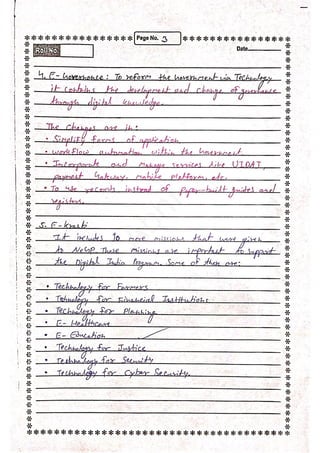 Page No. 3
Roll No.
Date
4. E-Governance: To reform the Government via Technology
it contains the development and change of guidance
through digital knowledge.
The Changes are in:
• Simplify forms of application
• workflow automation within the Government
• Incorporate and manage services like UIDAI,
payment Gateway, mobile platform, etc.
• To use records instead of paper-built guides and
registers.
5. E-kranti
It includes 10 more missions that were given
to NeGP. These missions are important to support
the Digital India Program. Some of them are:
• Technology for Farmers
• Technology for Financial Institutions
• Technology for Planning
• E-Healthcare
• E-Education
• Technology for Justice
• Technology for Security
• Technology for Cyber Security.